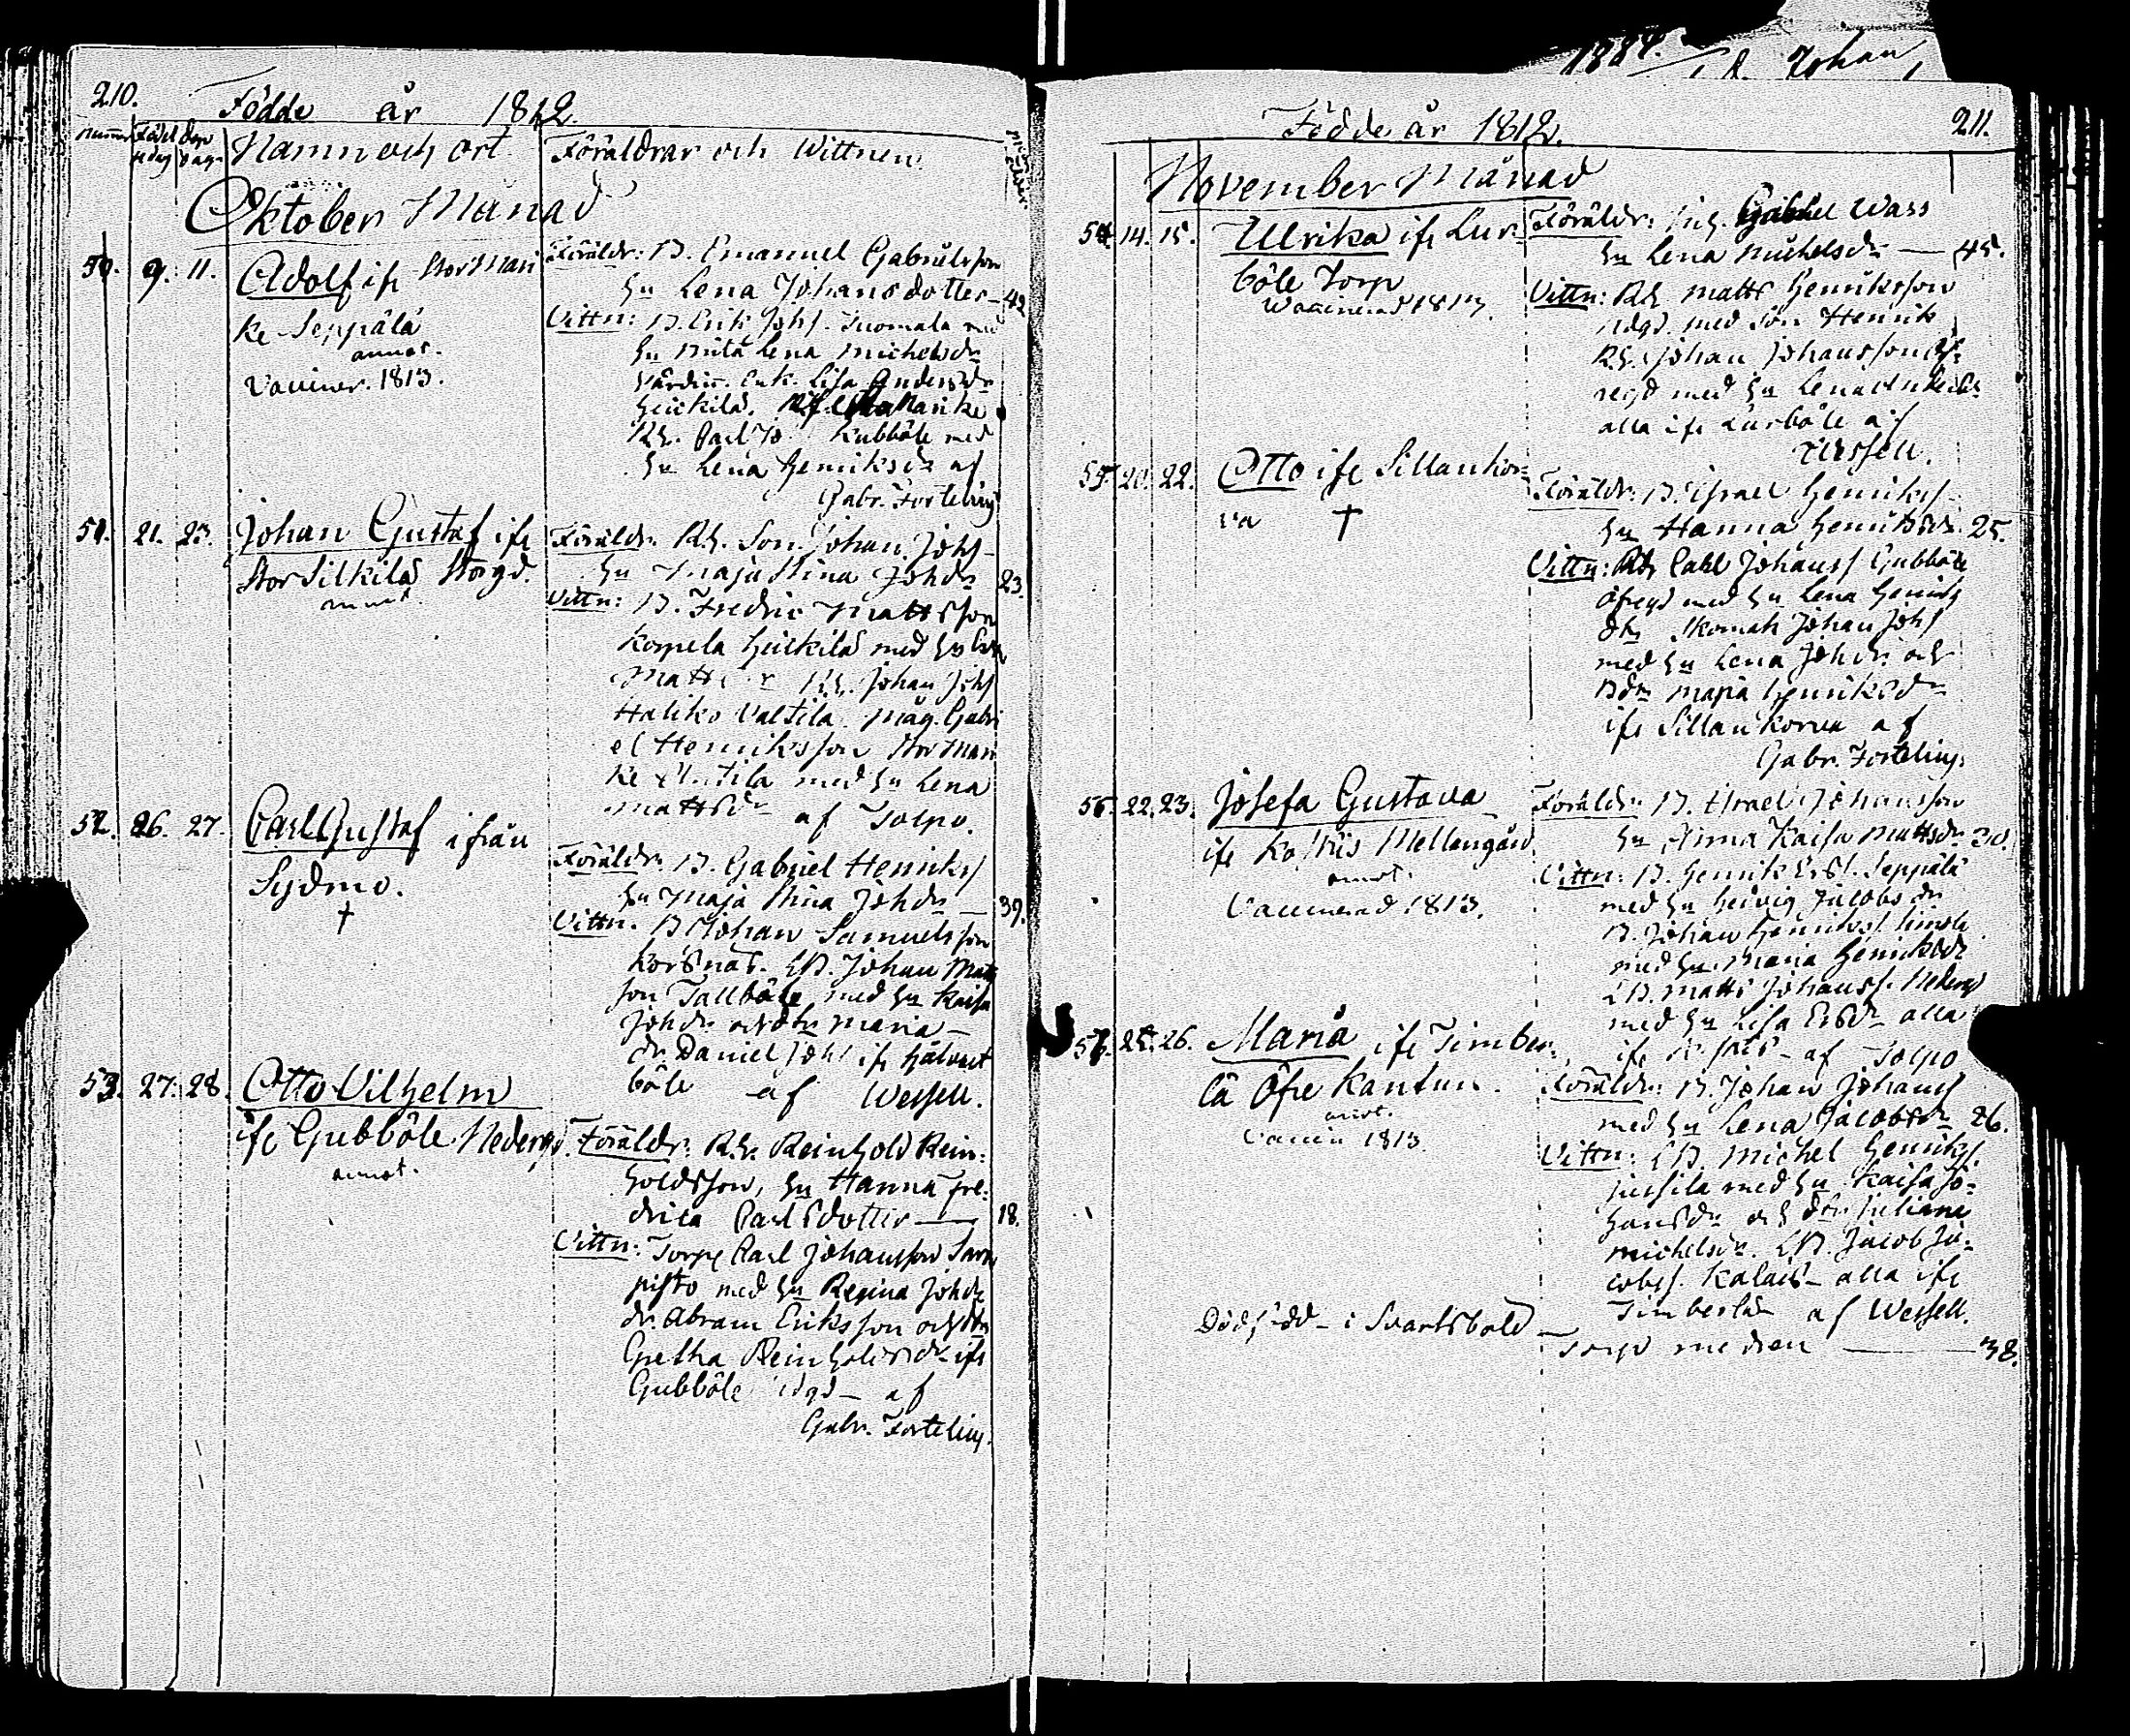 210.
Födde år 1812.
Namn och ort
Föräldrar och Wittnen
Oktober Månad
50. 9. 11. Adolf ifr StorMari
ke Seppälä
annot.
Vacciner. 1813.
Föräldr: B. Emanuel Gabrielsson
hu Lena Johansdotter - 42
Vittn: B. Erik Johs. Tuomala med
hu Brita Lena Michelsdr
Värdin. Enk. Lisa Andersdr
Heickilä.
Rh. Carl Jo. Kubböle med
hu Lena Henriksdr af
Gabr. Fortelius
51. 21. 23. Johan Gustaf ifr
Stor Silkilä Storgd.
annot.
Föräldr. Rh. Son. Johan Johs
hu Maja Stina Johdr 23.
Vittn: B. Fredric Mattsson
Korpela Heickilä med hu
Matts Rh. Johan Johs
Haliko Valtila. Måg. Gabri
el Henriksson StorMari
ke med hu Lena
Mattsdr af Tolpo.
52. 26. 27. Carl Gustaf ifrån
Sydmo.
†
Föräldr. B. Gabriel Henrikss
hu Maja Stina Johdr 39.
Vittn. B Johan Samuelsson
Korsnäs. LB. Johan Mats
son Tallböle med hu Kaisa
Johdr och dtr Maria
dr. Daniel Johs ifr Hälvet
böle af Wessell.
53. 27. 28. Otto Vilhelm
ifr Gubböle Nedergd.
annot.
Föräldr: Rh. Reinhold Rein-
holdsson, hu Hanna Fre-
drica Carlsdotter 18.
Vittn: Torpr Carl Johansson
med hu Regina Johdr
dr. Abram Eriksson och dtr
Gretha Reinholdsdr ifr
Gubböle Ndgd af
Gabr. Fortelius.
1884.
Johan
Födde år 1812.
211.
November Månad
54. 14. 15. Ulrika ifr Lur-
böle Torp
Vaccinerad 1813.
Föräldr: Gabriel Wass
hu Lena Michelsdr 45.
Vittn: Rh. Matts Henriksson
Ndgd. med son Henrik
Rh. Johan Johansson Öf-
regd med hu Lena
alla ifr Lurböle af
Wessell.
55. 20. 22. Otto ifr Sillankor-
va †
Föräldr: B. Israel Henrikss
hu Hanna Henriksdr. 25.
Vittn: Rh Carl Johanss Gubböle
Öfregd med hu Lena Henriks
dtr Skomak Johan Johs
med hu Lena Johdr och
Bdr Maria Henriksdr
ifr Sillankorva af
Gabr. Fortelius.
56. 22. 23. Josefa Gustava
ifr Koskis Mellangård
annot.
Vaccinerad 1813.
Föräldr: B. Israel Johansson
hu Anna Kaisa Mattsdr 30.
Vittn: B. Henrik Ers. Seppälä
med hu Hedvig Jacobsdr
B. Johan Henrikss. Simola
med hu Maria Henriksdr
LB. Matts Johanss. Nedergd
med hu Lisa Ersdr alla
ifr af Tolpo
57. 25. 26. Maria ifr Timber-
lä Öfre Kantun.
annot.
Vaccin 1813.
Föräldr: B. Johan Johanss
med hu Lena Jacobsdr 26.
Vittn: LB. Michel Henrikss.
Jussila med hu Kaisa Jo-
hansdr och dtr Juliana
Michelsdr. LB. Jacob Ja-
cobss. Kalais alla ifr
Timberlä af Wessell.
Dödfödd i Svartsböle
Torp medran 38.